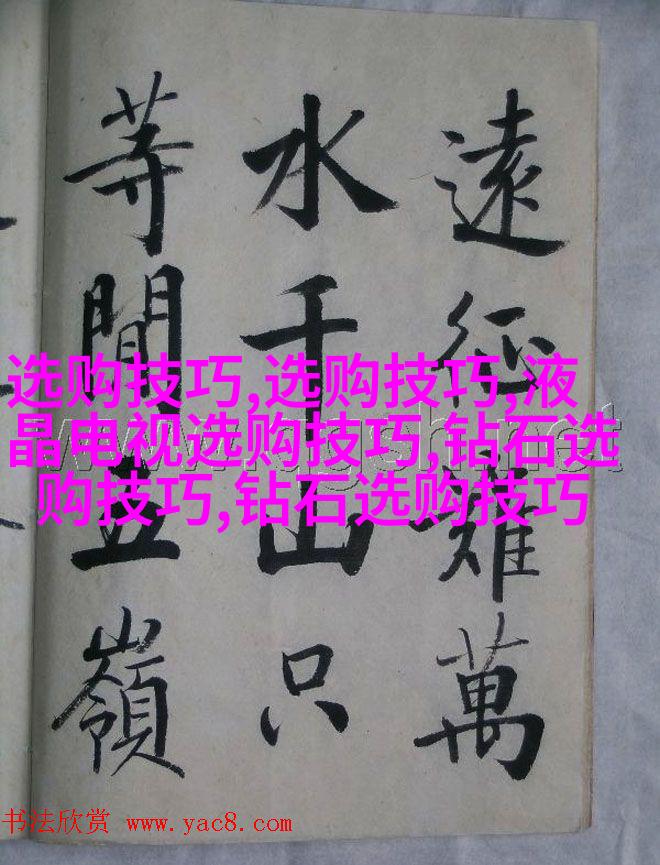 遠征難萬
水千山只
等間五嶺
选购技巧,选购技巧,液
晶电视选购技巧,钻石选
购技巧,钻石选购技巧
书法欣赏 www.yac8.com